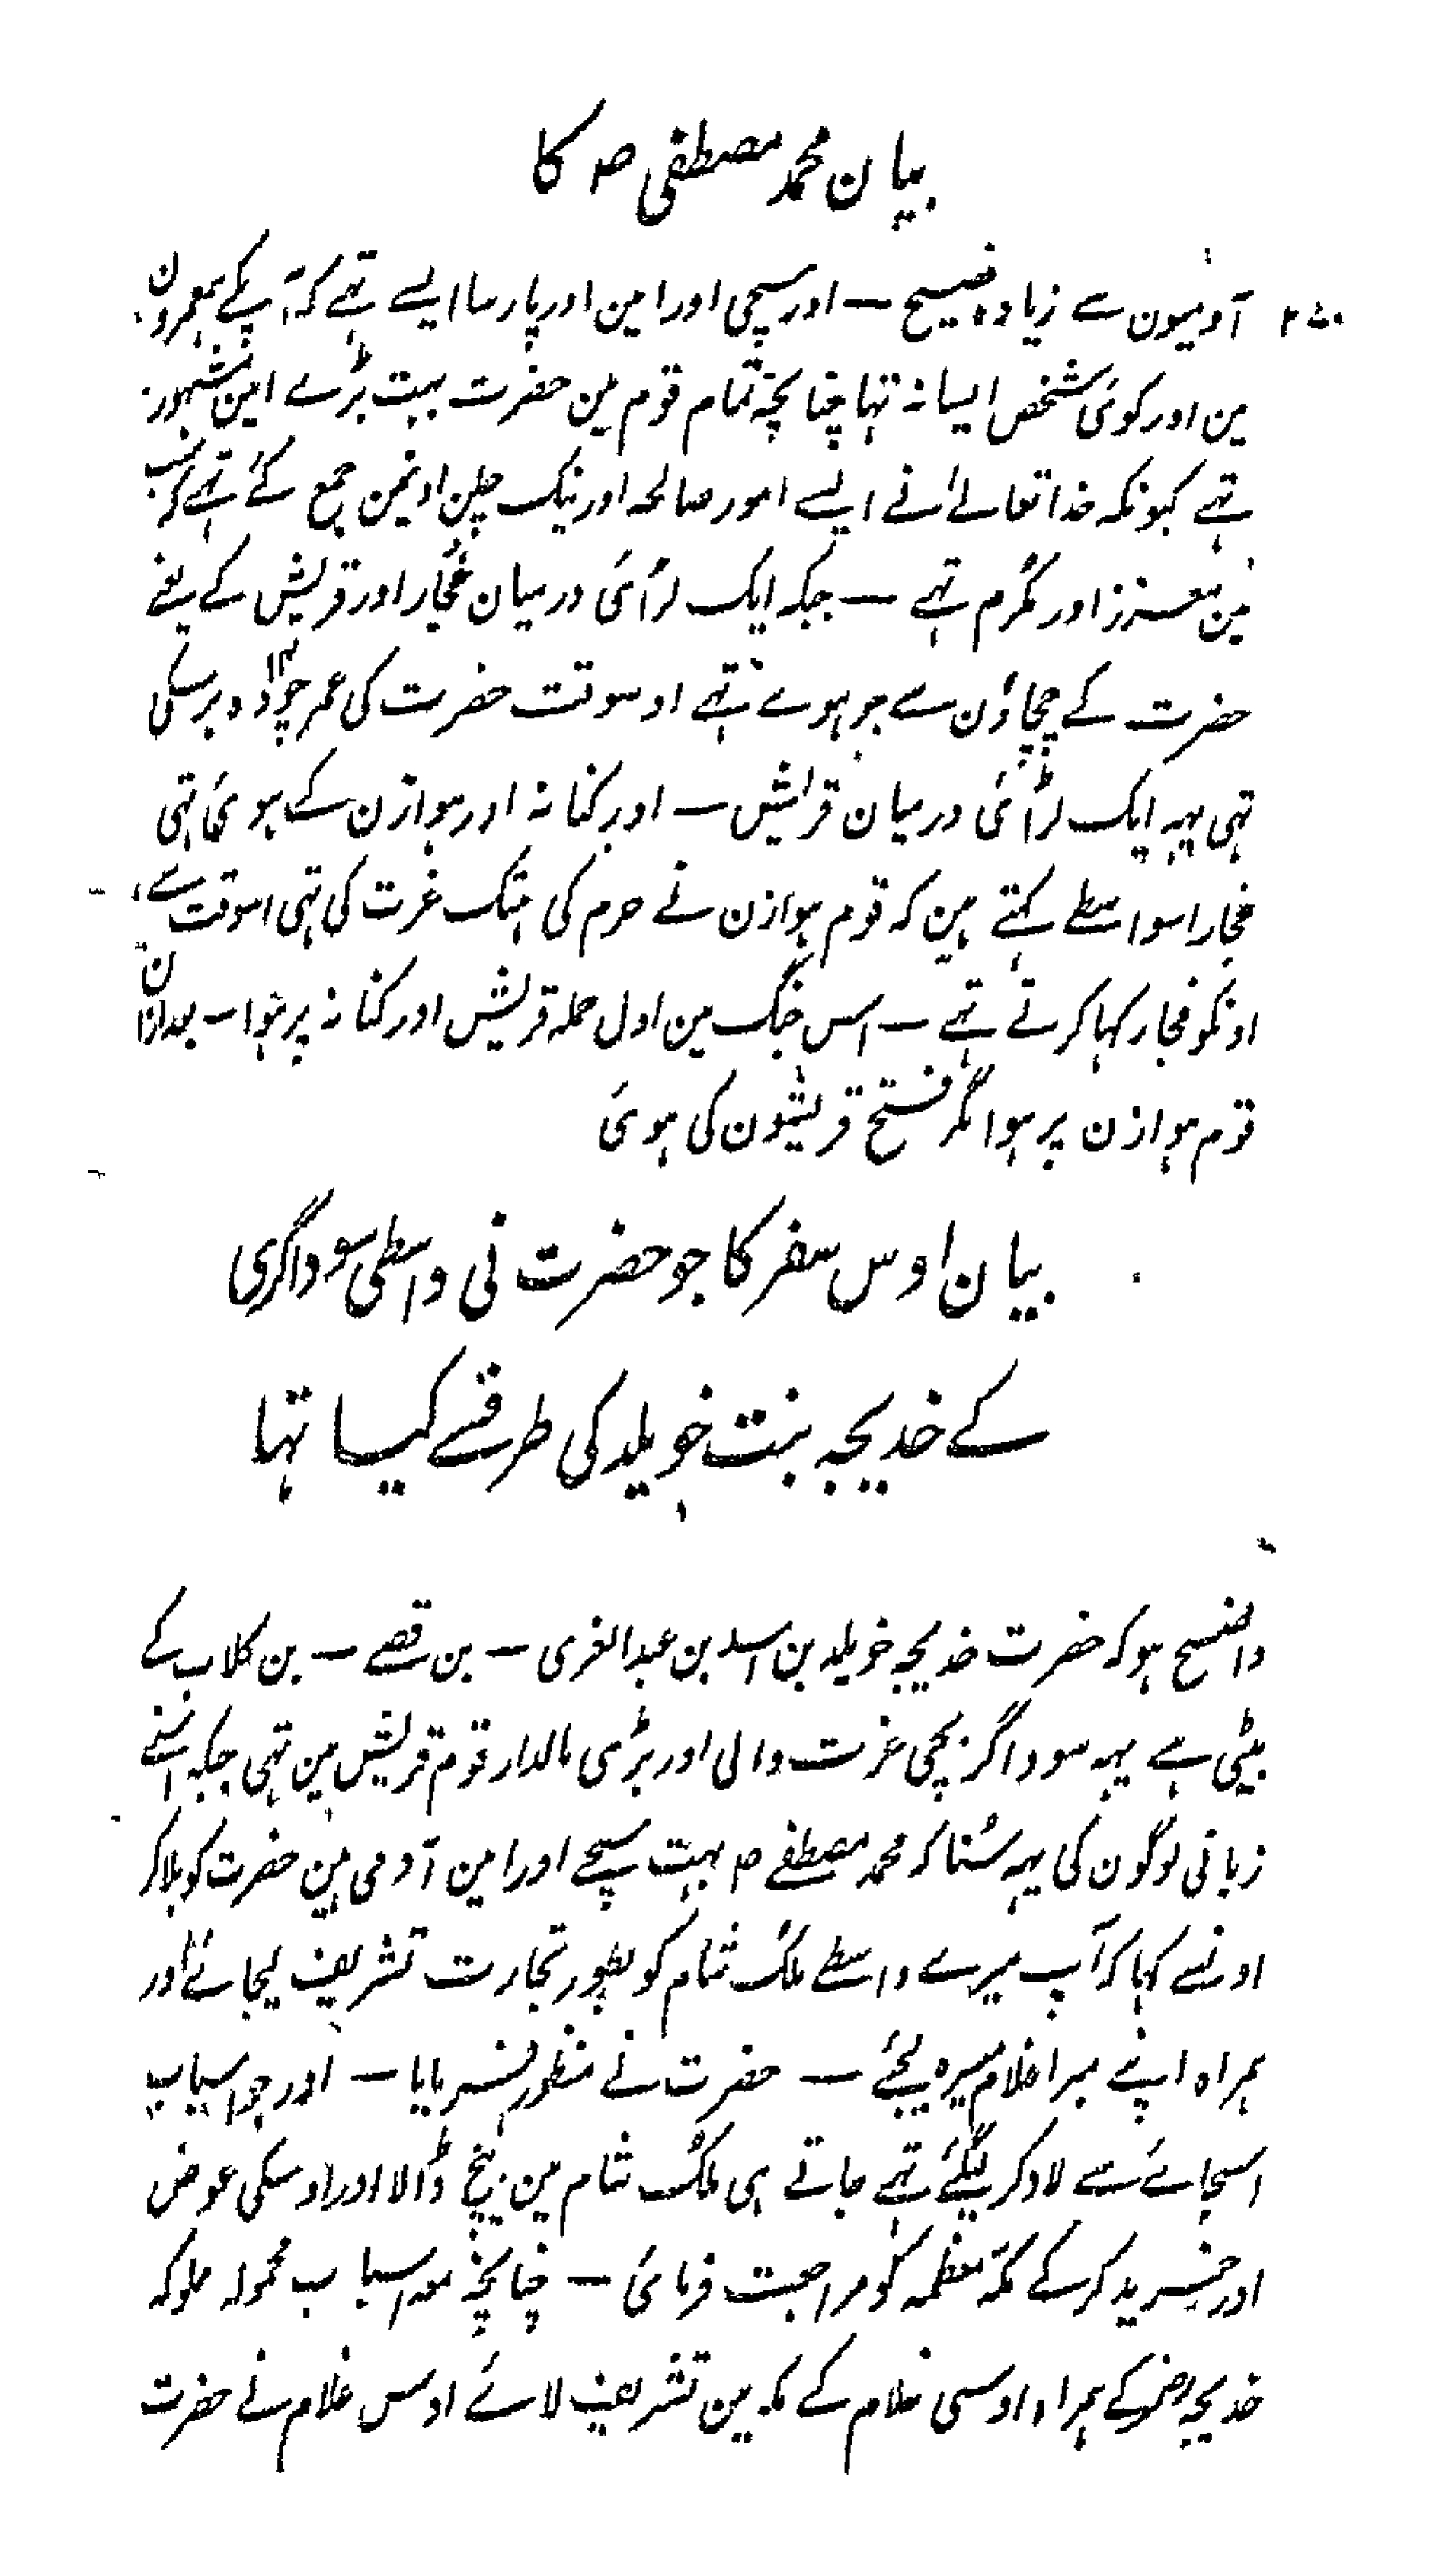 بیان محمد مصطفی ص کا
۲۷۰ آدمیون سے زیادہ فصیح — اور سچی اور امین اور پارسا ایسے تہے کہ آپکے ہمعمرون
مین اور کوئی شخص ایسا نہ تہا چنانچہ تمام قوم مین حضرت بہت بڑے امین مشہور
تہے کیونکہ خدا تعالےٰ نے ایسے امور صالحہ اور نیک چلن اونمین جمع کئے تہے کہ سب
مین معزز اور مکرم تہے — جبکہ ایک لڑائی درمیان فجّار اور قریش کے یعنے
حضرت کے چچاؤن سے جو ہوے تہے اوسوقت حضرت کی عمر چودہ ۱۴ برسکی
تہی یہہ ایک لڑائی درمیان قریش — اور کنانہ اور ہوازن کے ہوئی تہی
فجار اسواسطے کہتے ہین کہ قوم ہوازن نے حرم کی ہتک عزت کی تہی اسوقت سے
اونکو فجار کہا کرتے تہے — اس جنگ مین اول حملہ قریش اور کنانہ پر ہوا — بعد ازان
قوم ہوازن پر ہوا مگر فتح قریشون کی ہوئی
بیان اوس سفر کا جو حضرت نی واسطی سوداگری
کے خدیجہ بنت خویلد کی طرفسے کیا تہا
واضح ہو کہ حضرت خدیجہ خویلد بن اسد بن عبدالعزی — بن قصے — بن کلاب کے
بیٹی ہے یہہ سوداگر بچی عزت والی اور بڑی مالدار قوم قریش مین تہی جبکہ اسنے
زبانی لوگون کی یہہ سُنا کہ محمد مصطفے ص بہت سچے اور امین آدمی ہین حضرت کو بلا کر
اونسے کہا کہ آپ میرے واسطے ملک شام کو بطور تجارت تشریف لیجائے اور
ہمراہ اپنے میرا غلام میسرہ لیجئے — حضرت نے منظور فرمایا — اور جو اسباب
اسجائے سے لاد کر لیگئے تہے جاتے ہی ملک شام مین بیچ ڈالا اور اوسکی عوض
اور خرید کر کے مکہ معظمہ کو مراجعت فرمائی — چنانچہ معہ اسباب محمولہ مملوکہ
خدیجہ رض کے ہمراہ اوسی غلام کے مکہ مین تشریف لائے اوس غلام نے حضرت